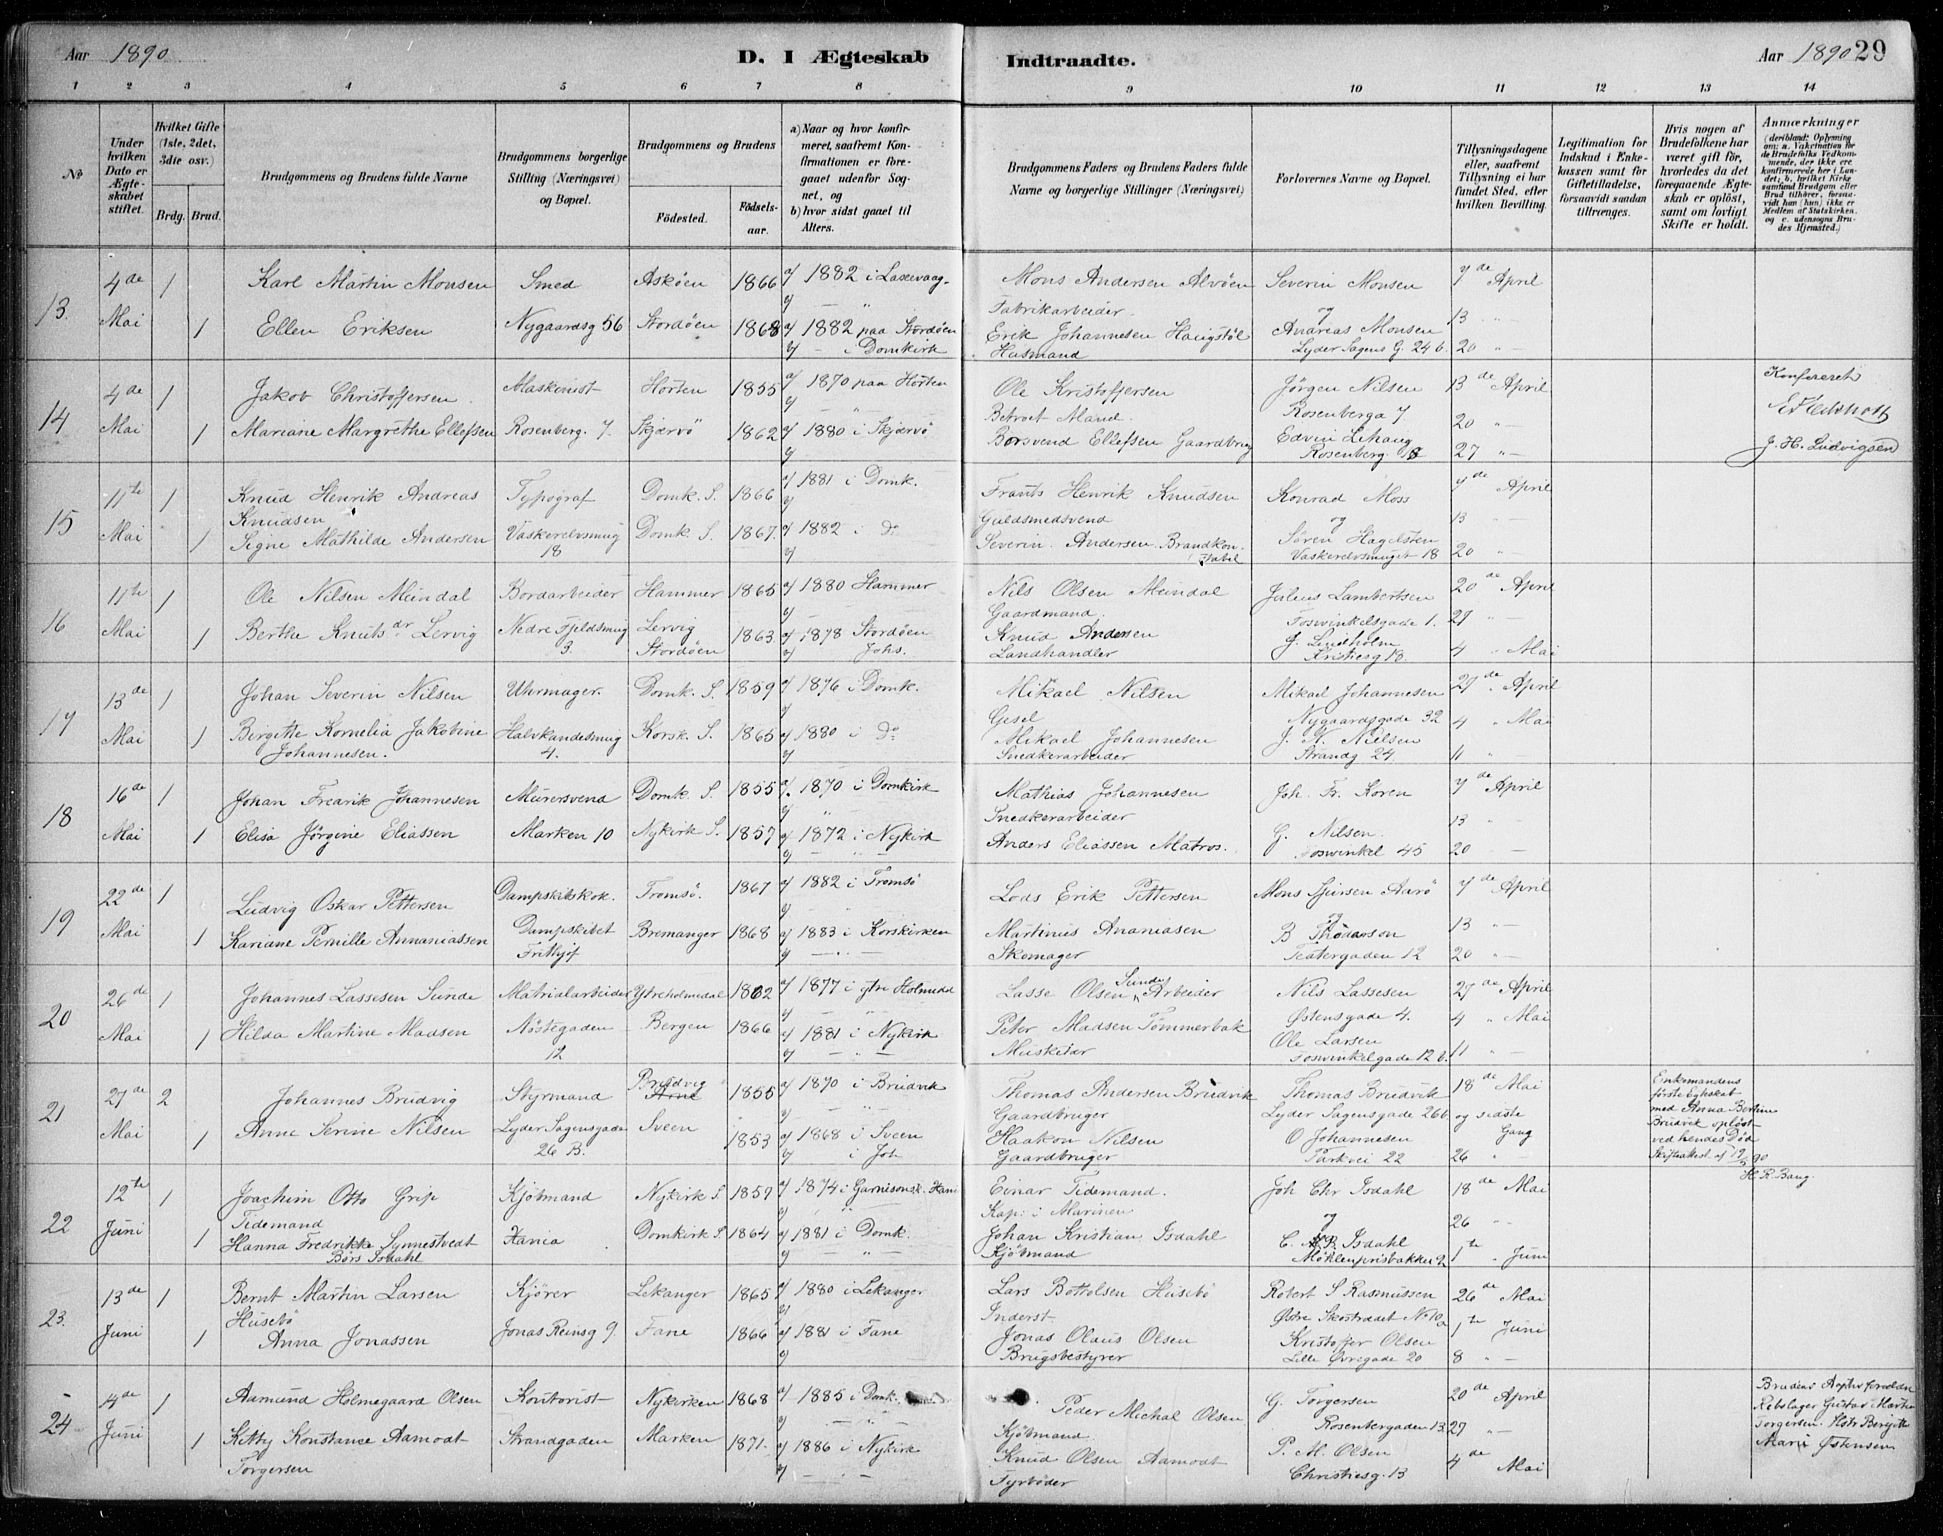 Aar 1890. D. I Ægteskab Indtraadte. Aar 1890 29
1 2 3 4 5 6 7 8 9 10 11 12 13 14
No
Under hvilken Dato er Ægteskabet stiftet.
Hvilket Gifte (1ste, 2det, 3die osv.)
Brdg. Brud.
Brudgommens og Brudens fulde Navne
Brudgommens borgerlige Stilling (Næringsvei) og Bopæl.
Brudgommens og Brudens
Fødested. Fødselsaar.
a) Naar og hvor konfirmeret, saafremt Konfirmationen er foregaaet udenfor Sognet, og
b) hvor sidst gaaet til Alters.
Brudgommens Faders og Brudens Faders fulde Navne og borgerlige Stillinger (Næringsvei)
Forlovernes Navne og Bopæl.
Tillysningsdagene eller, saafremt Tillysning ei har fundet Sted, efter hvilken Bevilling.
Legitimation for Indskud i Enkekassen samt for Giftetilladelse, forsaavidt saadan tiltrænges.
Hvis nogen af Brudefolkene har været gift før, hvorledes da det foregaaende Ægteskab er opløst, samt om lovligt Skifte er holdt.
Anmærkninger
(deriblandt: Oplysning om: a. Vakcination for de Brudefolks Vedkommende, der ikke ere konfirmerede her i Landet; b. hvilket Kirkesamfund Brudgom eller Brud tilhører, forsaavidt han (hun) ikke er Medlem af Statskirken, og c. udensogns Brudes Hjemsted.)
13. 4de Mai 1 Karl Martin Monsen Smed Askøen 1866 a/ 1882 i Laxevaag. Mons Andersen Alvøen Severin Monsen 7de April
Fabrikarbeider. og 13 " —
1 Ellen Eriksen Nygaardsg 56 Stordøen 1868 a/ 1882 paa Stordøen Erik Johannesen Haugstøl Andreas Monsen
b/ — i Domkirk Husmand Lyder Sagens G. 24 b. 20 " —
14 4de Mai 1 Jakob Christoffersen Maskenist Horten 1855 a/ 1870 paa Horten Ole Kristoffersen Jörgen Nilsen 13de April Konfereret
Betroet Mand. Rosenberga 7 20 " —
1 Mariane Margrethe Ellefsen Rosenberg. 7. Skjærvö 1862 a/ 1880 i Skjærvö Borsvend Ellefsen Gaardbrug Edvin Lehaug J. H. Ludvigsen
Rosenberg. 18 27 " —
15 11te Mai 1 Knud Henrik Andreas Typograf Domk. S. 1866 a/ 1881 i Domk. Frants Henrik Knudsen Konrad Moss 7de April
Knudsen Guldsmedsvend og 13 " —
1 Signe Mathilde Andersen Vaskerelvsmug 18 Domk. S. 1867. a/ 1882 i Do Severin Andersen Brandkonstabel Sören Hagelsteen
Vaskerelvsmuget 18 20 " —
16 11te Mai 1 Ole Nilsen Meindal Bordarbeider Hammer 1865 a/ 1880 Hammer Nils Olsen Meindal Julius Lambertsen 20de April
Gaardmand. Foswinkelsgade 1. 27 " —
1 Berthe Knutsdr Lervig Nedre Fjeldsmug 3. Lervig Stordøen 1863 a/ 1878 Stordøen Knud Andersen J. Lindholm
b/ Johs. Landhandler Kristiesg 13. 4 " Mai
17 13de Mai 1 Johan Severin Nilsen Uhrmager. Domk. S. 1859 a/ 1876 i Domk. Mikael Nilsen Mikael Johannesen 27de April
Gesel Nygaardsgade 32 4 " Mai
1 Birgithe Kornelia Jakobine Johannesen. Halvkandesmug 4. Korsk. S. 1865 a/ 1880 i Do Mikael Johannesen J. N. Nielsen
Snedkerarbeider Strandg 24. 11 " —
18 16de Mai 1 Johan Fredrik Johannesen Murersvend Domk. S. 1855 a/ 1870 i Domkirk Mathias Johannesen Joh. Fr. Koren 7de April
Snedkerarbeider 13 " —
1 Elisa Jörgine Eliassen Marken 10 Nykirk S. 1857 a/ 1872 i Nykirk Anders Eliassen Matros. G. Nilsen.
Foswinkel 45 20 " —
19 22de Mai 1 Ludvig Oskar Pettersen Dampskibskok. Tromsö. 1867 a/ 1882 i Tromsö Lods Erik Pettersen Mons Sjursen Aarö 7de April
og 13 " —
1 Kariane Pernille Annaniassen Dampskibet Frithjof Bremanger 1868 a/ 1883 i Korskirken Martinus Ananiasen B Thodarson
Skomager Teatergaden 12 20 " —
20 26de Mai 1 Johannes Lassesen Sunde Matrialarbeider Ytreholmedal 1862 a/ 1877 i ytre Holmedal Lasse Olsen Sunde Arbeider Nils Lassesen 27de April
Østensgade 4. 4 " Mai
1 Hilda Martine Madsen Nöstegaden 12 Bergen 1866 a/ 1881 i Nykirk Peter Madsen Tömmerbak Ole Larsen
Musketær Foswinkelgade 12 b. 11 " —
21 27de Mai 2 Johannes Brudvig Styrmand Brudvig Arne 1855 a/ 1870 i Brudvik Thomas Andersen Brudvik Thomas Brudvik 18de Mai Enkemandens
Gaardbruger Lyder Sagensgade 26b og sidste Gang første Egteskab
1 Anne Serine Nilsen Lyder Sagensgade 26 B. Sveen 1853 a/ 1868 i Sveen Haakon Nilsen O Johannesen med Anna Bertine Brudvik opløst
b/ i Joh. Gaardbruger Parkvei 22 26 " ved hendes Død
Skifteattest af 19/5 90
H. R. Bang.
22 12te Juni 1 Joachim Otto Grip Tidemand Kjöbmand Nykirk S 1857 a/ 1874 i Garnisonsk. Einar Tidemand. Joh Chr Isdahl 18de Mai
Kap: i Marinen og 26 " —
1 Hanna Fredrikke Synnestvedt Börs Isdahl Havia Domkirk S. 1864 a/ 1881 i Domk. Johan Kristian Isdahl C. B. Isdahl
Kjöbmand Möhlenprisbakken 2 1te " Juni
23. 13de Juni 1 Bernt Martin Larsen Husebö Kjörer Lekanger 1865 a/ 1880 i Lekanger Lars Bottolsen Husebö Robert S Rasmussen 26de Mai
Inderst. Østre Skostrædet No 10a 1te Juni
1 Anna Jonassen Jonas Reinsg 9. Fane 1866 a/ 1881 i Fane Jonas Olaus Olsen Kristoffer Olsen
Brugsbestyrer Lille Øvregade 20 8 " —
24 14de Juni 1 Aamund Holmegaard Olsen Kontorist Nykirken 1868 a/ 1885 i Domk. Peder Michal Olsen G. Torgersen 20de April Brudens Adoptivforældre
Kjöbmand. Rosenbergaden 13. 27 " — Rebslager Gustav Martin
1 Kitty Konstance Aamodt Torgersen Strandgaden Marken 1871. a/ 1886 i Nykirk Knud Olsen Aamodt P. M. Olsen Torgersen Hstr Bergitte
Fyrböder Christiesg. 13 4de Mai Marie Østensen